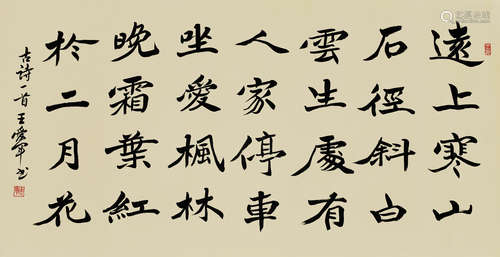 遠上寒山
石徑斜白
雲生處有
人家停車
坐愛楓林
晚霜葉紅
於二月花
古詩一首 王愛軍书